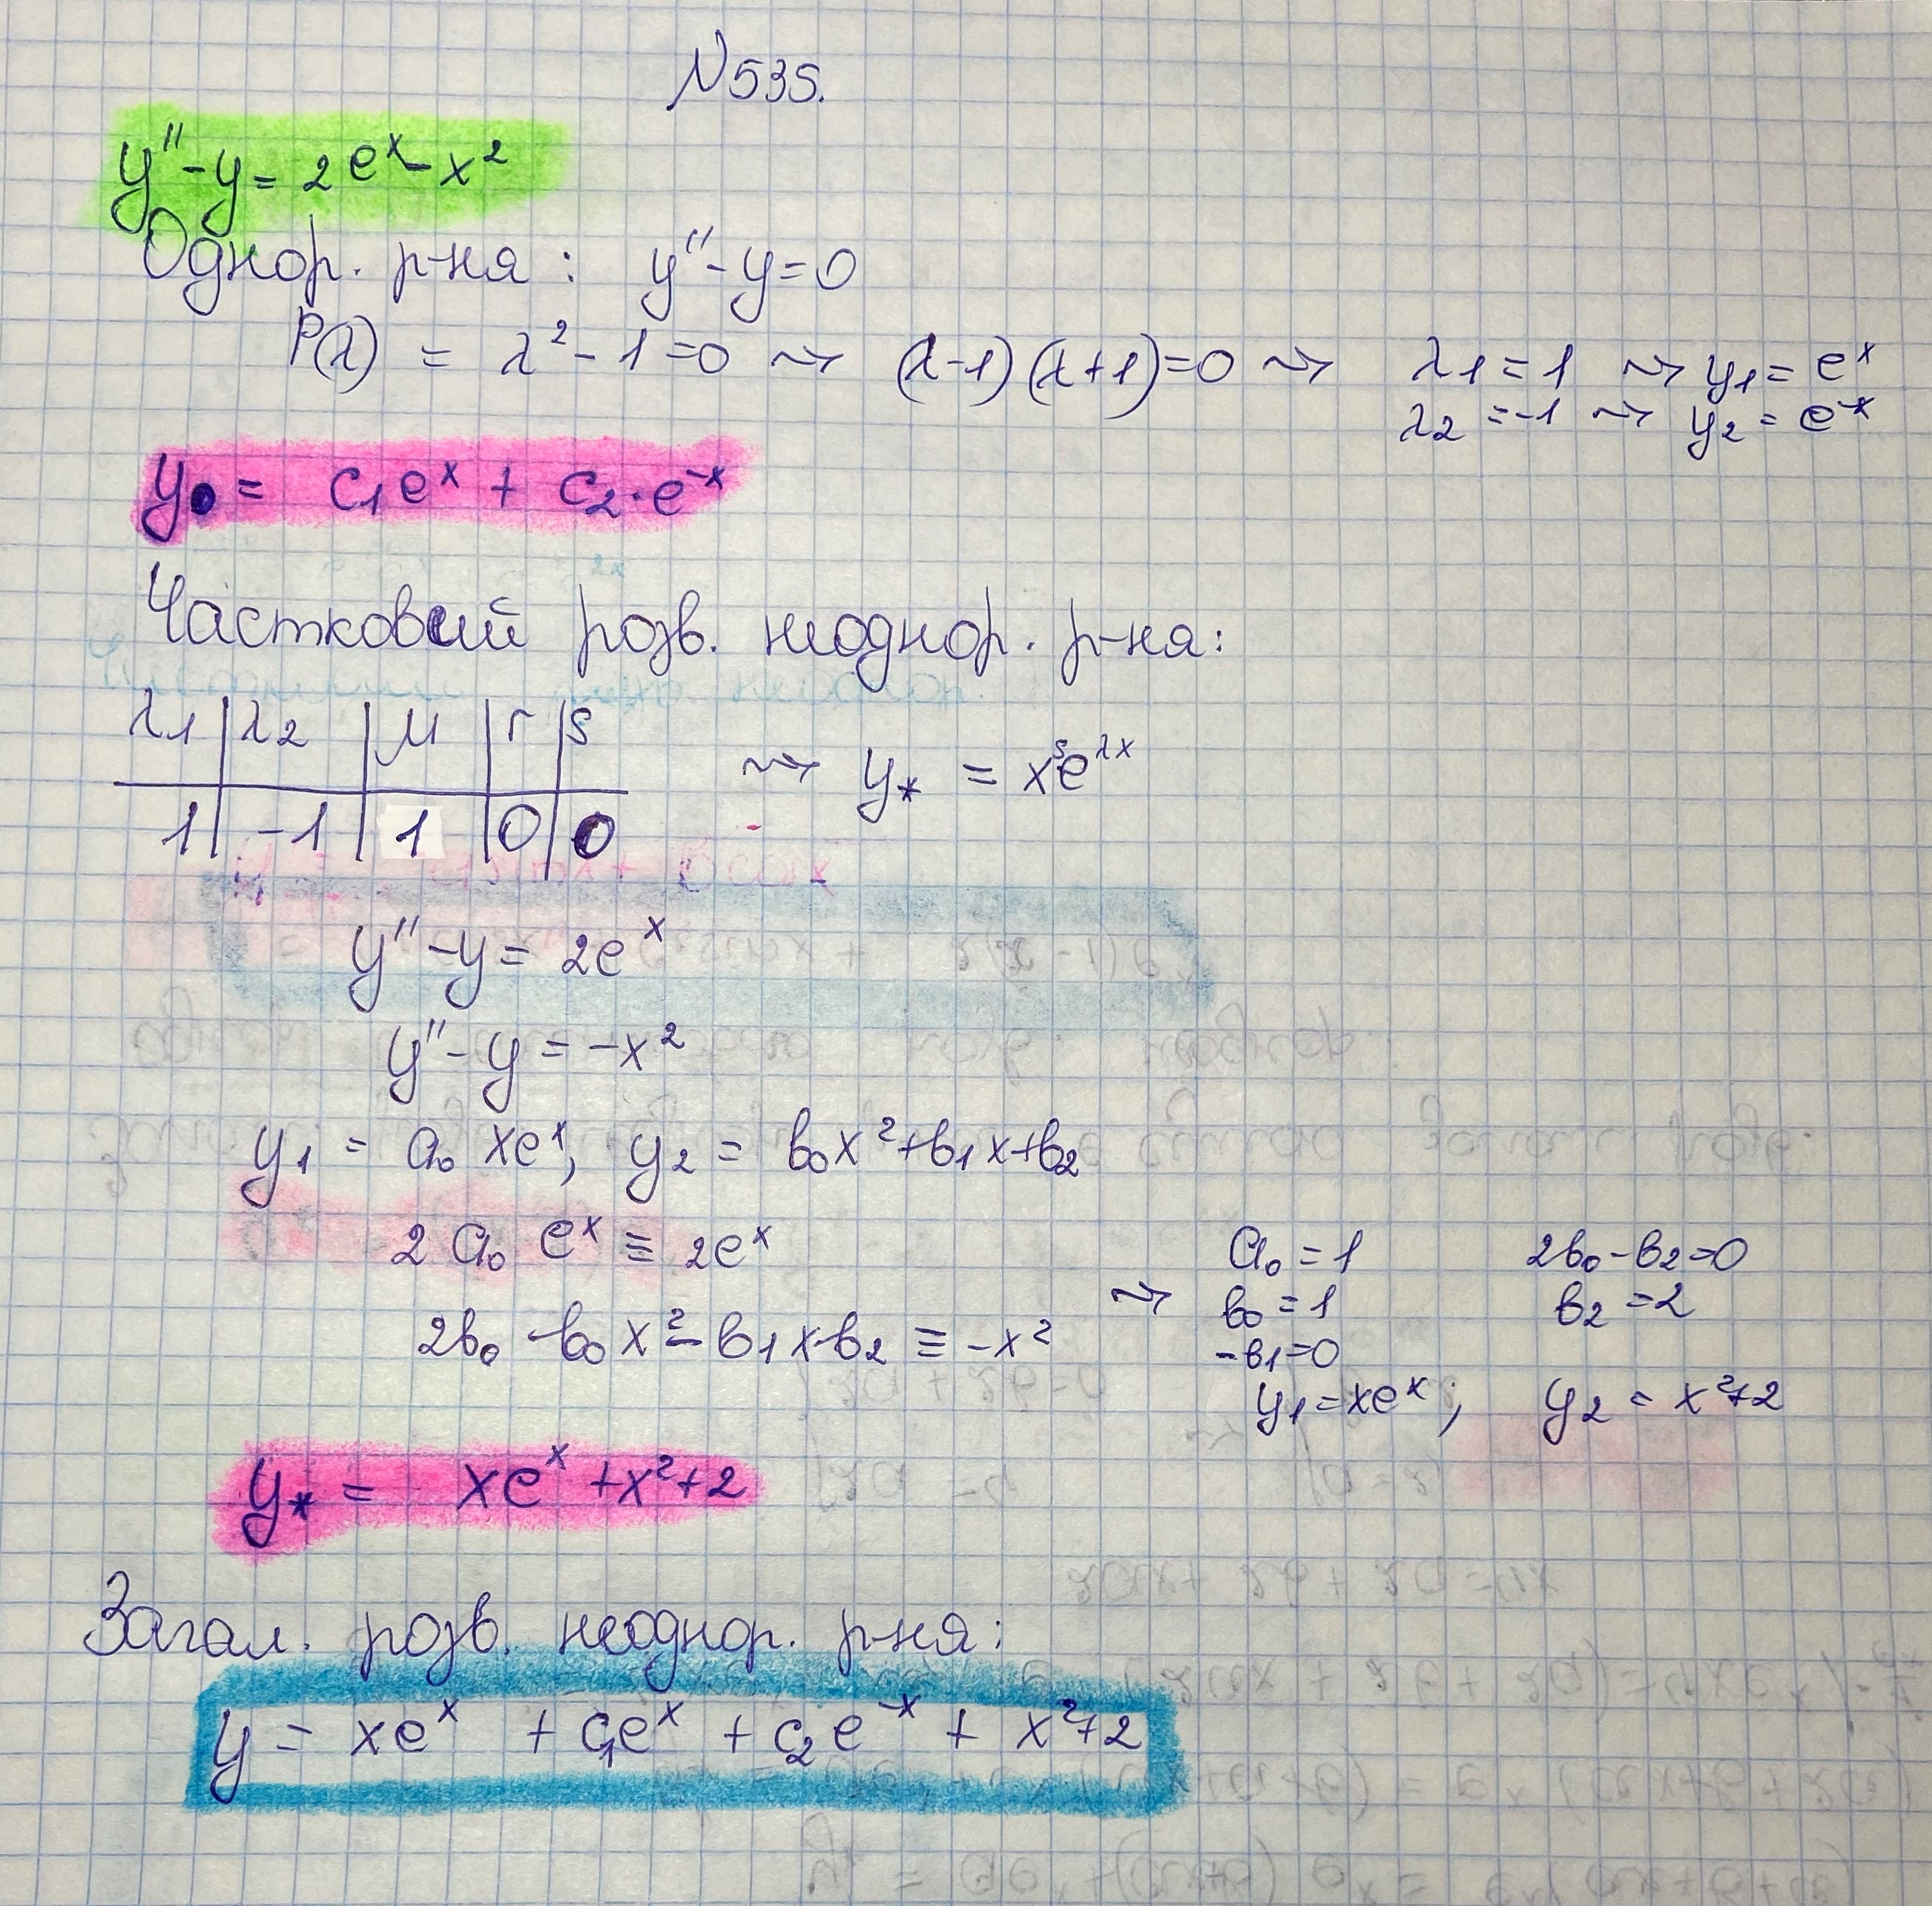 N535.
y''-y = 2e^x - x^2
Однор. р-ня: y''-y=0
P(λ) = λ^2 - 1 = 0 ⇝ (λ-1)(λ+1)=0 ⇝ λ1 = 1 ⇝ y1 = e^x
λ2 = -1 ⇝ y2 = e^-x
y0 = C1e^x + C2·e^-x
Частковий розв. неоднор. р-ня:
λ1 | λ2 | μ | r | s
1 | -1 | 1 | 0 | 0
⇝ y* = x^s e^λx
y''-y = 2e^x
y''-y = -x^2
y1 = a0 xe^x, y2 = b0x^2+b1x+b2
2a0 e^x ≡ 2e^x
2b0 -b0x^2 - b1x-b2 ≡ -x^2
⇝ a0 = 1 2b0-b2=0
b0 = 1 b2 = 2
-b1=0
y1 = xe^x; y2 = x^2+2
y* = xe^x + x^2+2
Загал. розв. неоднор. р-ня:
y = xe^x + C1e^x + C2e^-x + x^2+2